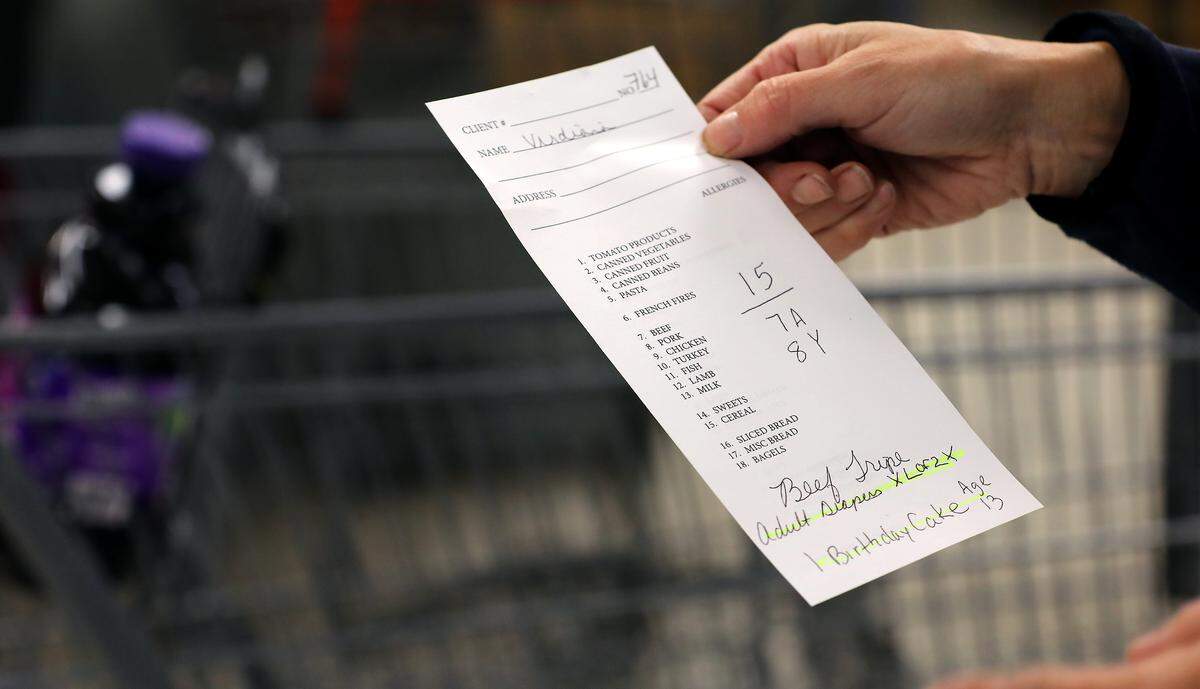 NO 764
CLIENT #
NAME
ADDRESS
ALLERGIES
1. TOMATO PRODUCTS
2. CANNED VEGETABLES
3. CANNED FRUIT
4. CANNED BEANS
5. PASTA
6. FRENCH FIRES
7. BEEF
8. PORK
9. CHICKEN
10. TURKEY
11. FISH
12. LAMB
13. MILK
14. SWEETS
15. CEREAL
16. SLICED BREAD
17. MISC BREAD
18. BAGELS
15
7A
8Y
Beef Tripe
Adult Diapers XL or 2X
1 Birthday Cake Age 13